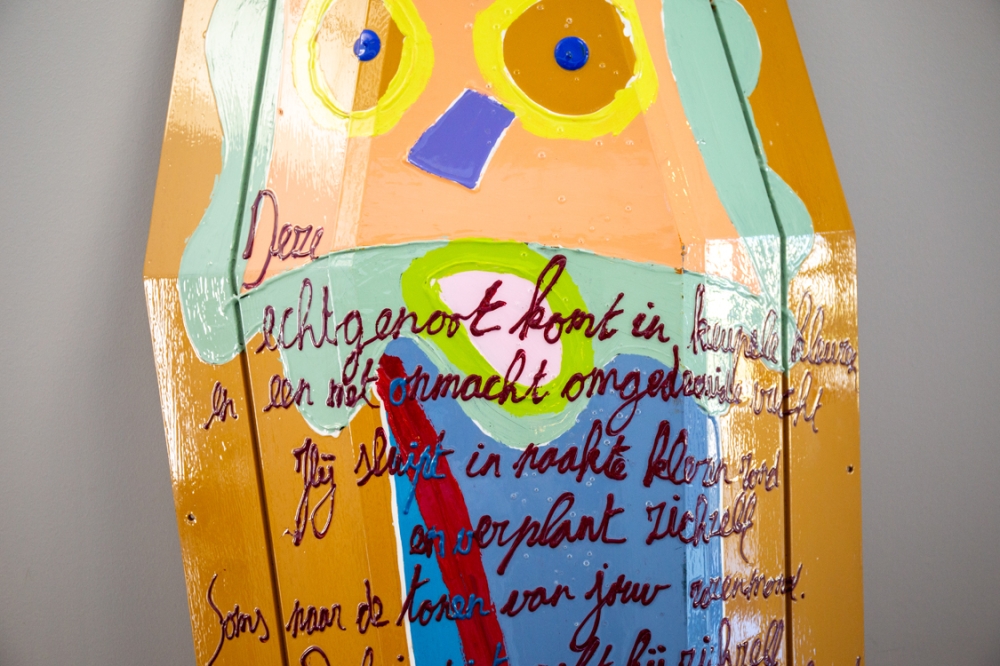 Deze
echtgenoot komt in keurele kleuren
en een met onmacht omgedraaide vacht
Hij sluipt in naakte kleren rond
en verplant zichzelf
Soms naar de tonen van jouw rozenmond.
zichzelf